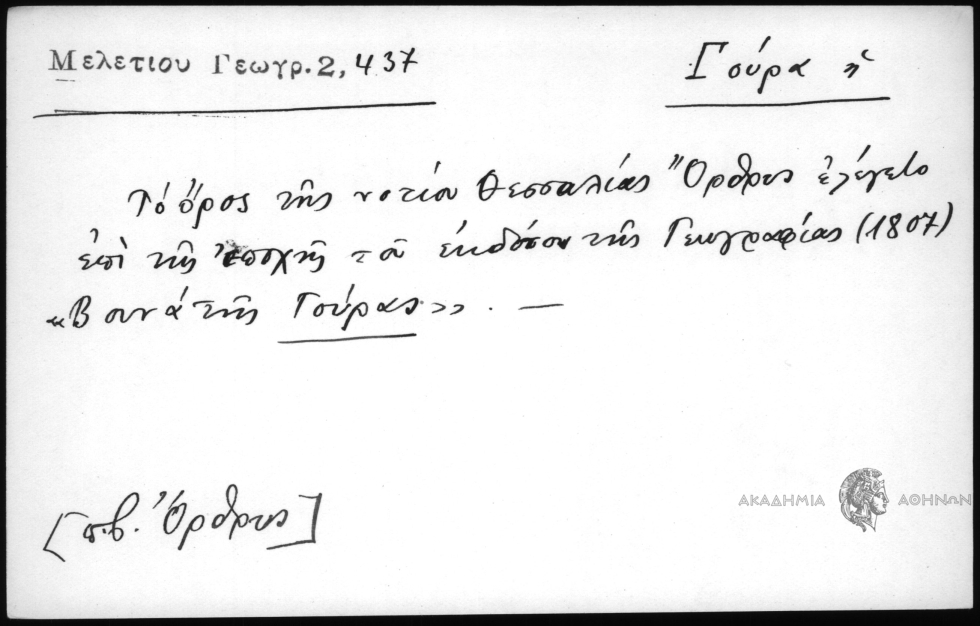 Μελετιου Γεωγρ. 2, 437
Γούρα ἡ
Τό ὄρος τῆς νοτίου Θεσσαλίας Ὄρθρυς ἐλέγετο
ἐπὶ τῆς ἐποχῆς τοῦ ἐκδόσου τῆς Γεωγραφίας (1807)
«Βουνά τῆς Γούρας» . —
[π.β. Ὄρθρυς]
ΑΚΑΔΗΜΙΑ ΑΘΗΝΩΝ